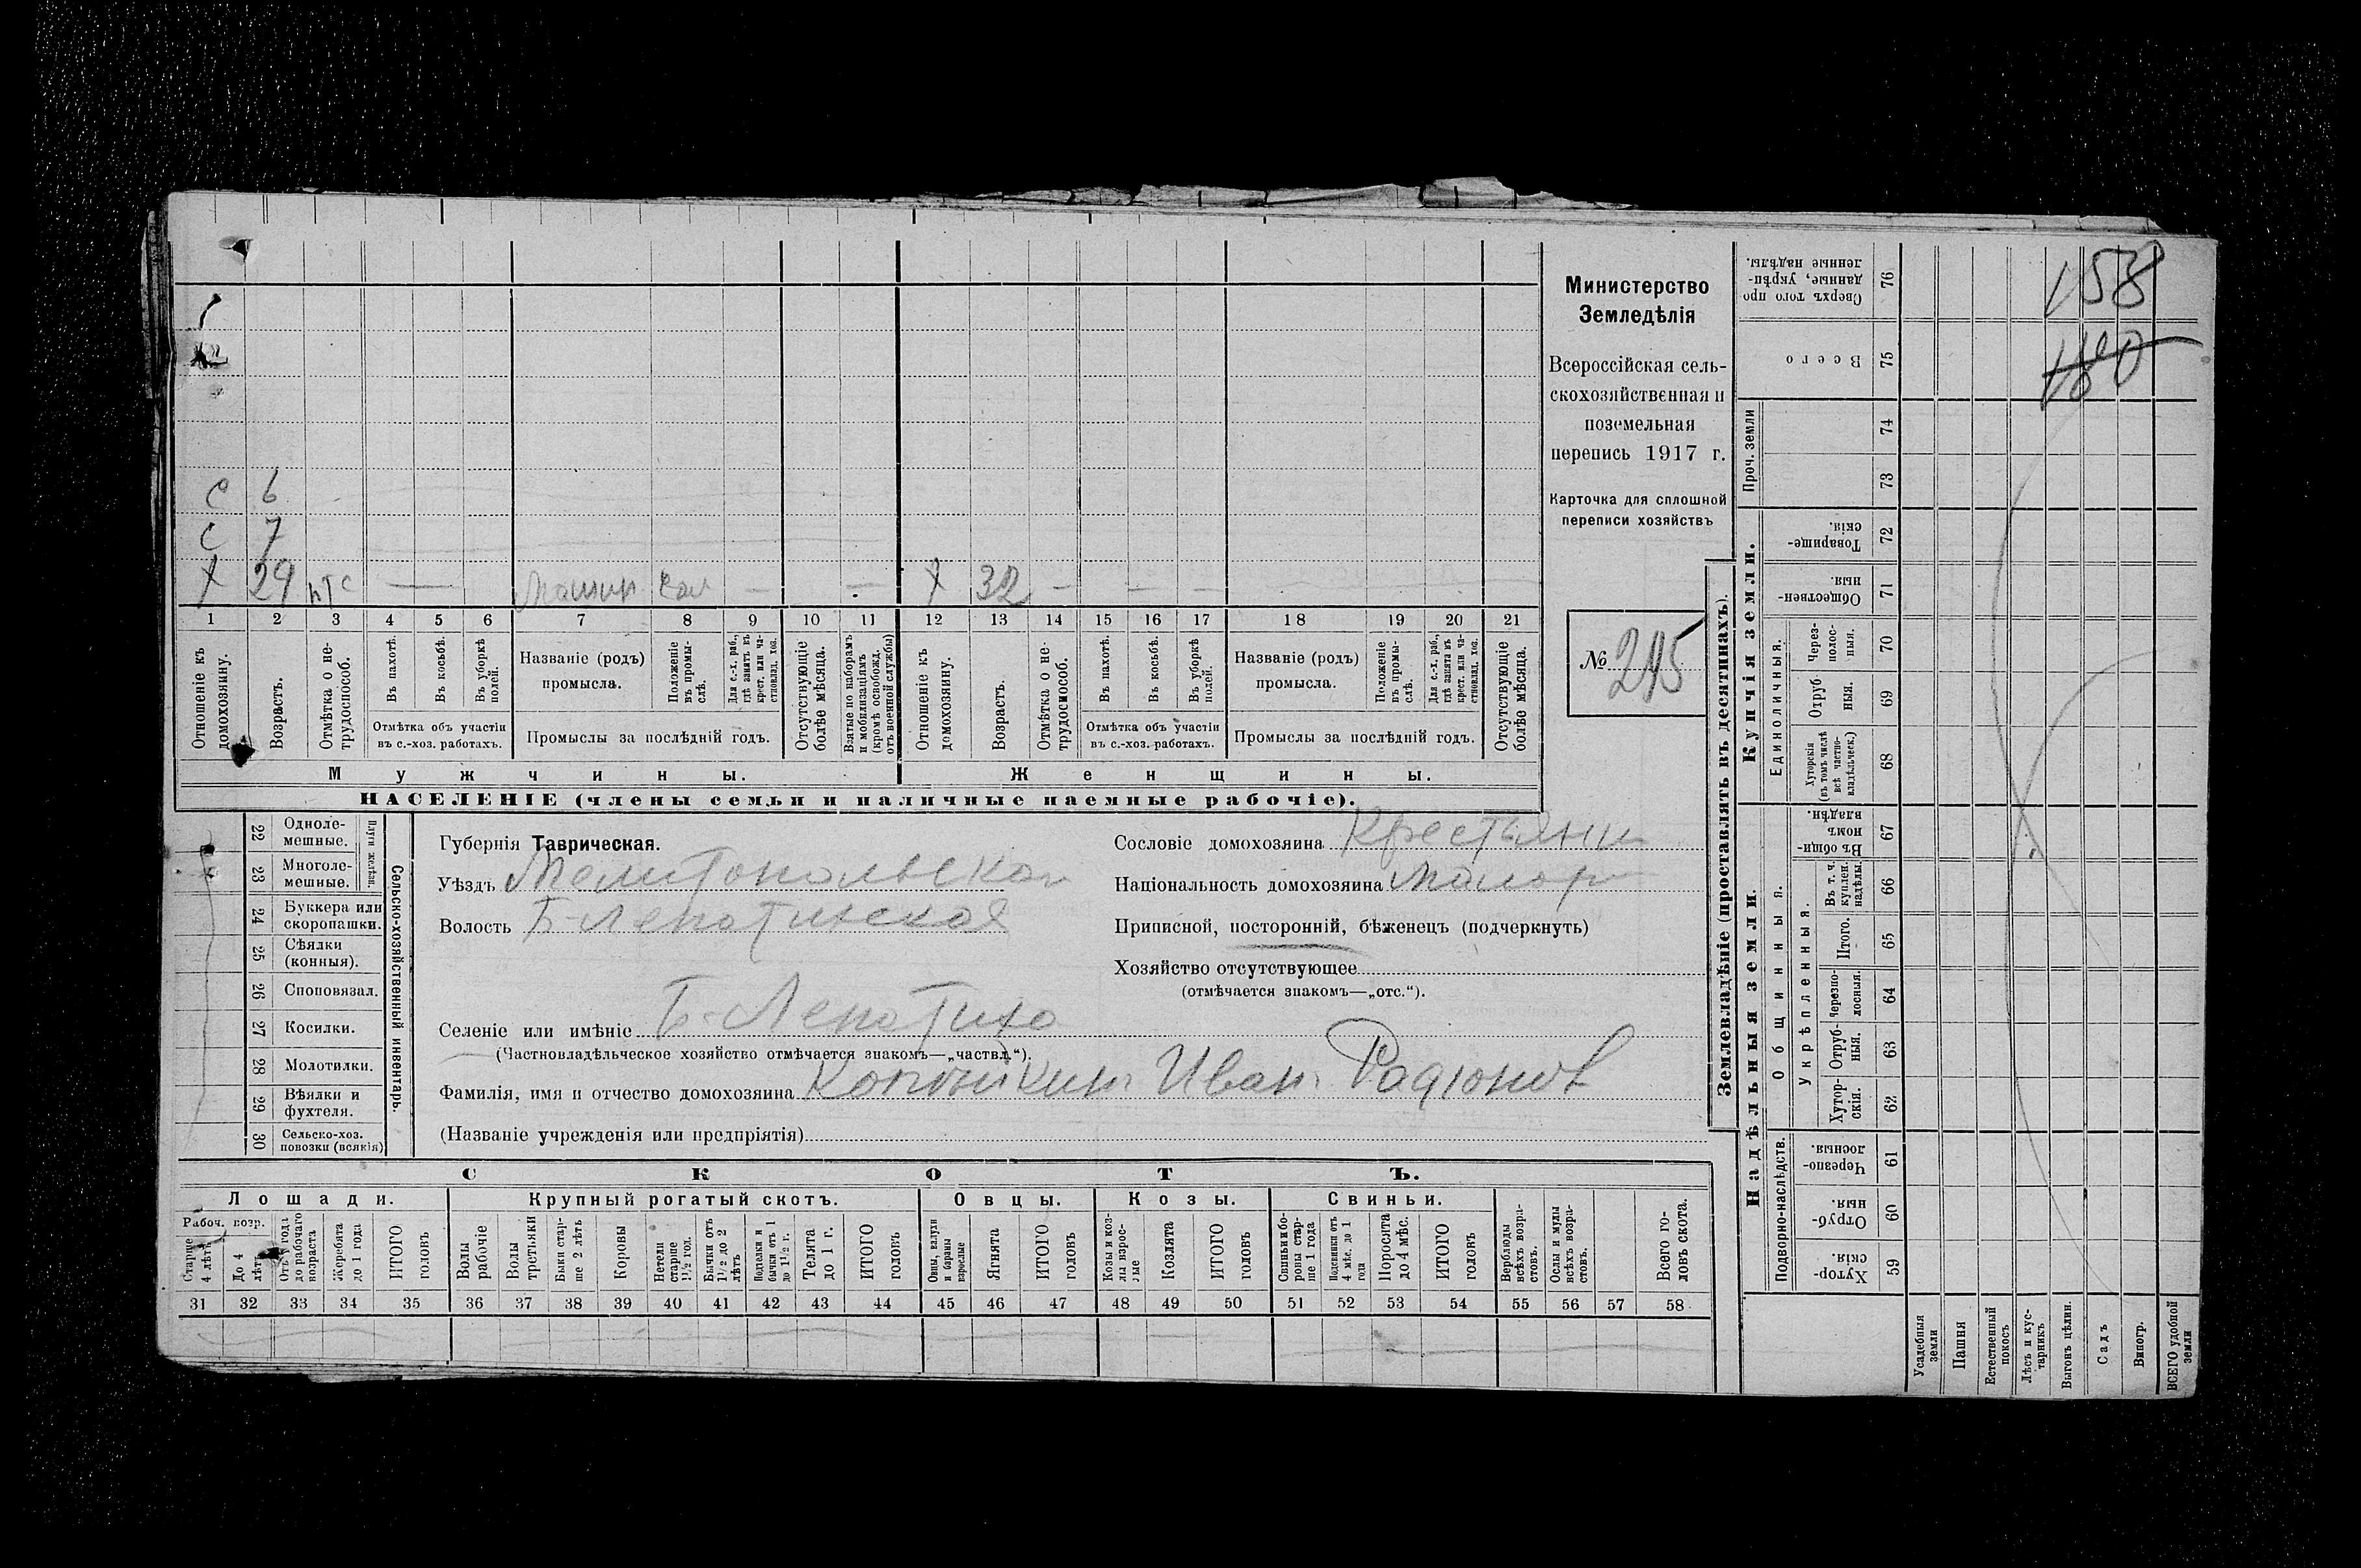 с 6
с 7
х 29 нтс — Машин — — х 32 — — —
1 2 3 4 5 6 7 8 9 10 11 12 13 14 15 16 17 18 19 20 21
Отношеніе къ домохозяину.
Возрастъ.
Отмѣтка о нетрудоспособ.
Въ пахотѣ.
Въ косьбѣ.
Въ уборкѣ полей.
Отмѣтка объ участіи въ с.-хоз. работахъ.
Названіе (родъ) промысла.
Положеніе въ промыслѣ.
Для с.-х. раб., гдѣ занятъ въ крест. или частновлад. хоз.
Промыслы за послѣдній годъ.
Отсутствующіе болѣе мѣсяца.
Взятые по наборамъ и мобилизаціямъ (кромѣ освобожд. отъ военной службы)
Отношеніе къ домохозяину.
Возрастъ.
Отмѣтка о нетрудоспособ.
Въ пахотѣ.
Въ косьбѣ.
Въ уборкѣ полей.
Отмѣтка объ участіи въ с.-хоз. работахъ.
Названіе (родъ) промысла.
Положеніе въ промыслѣ.
Для с.-х. раб., гдѣ занята въ крест. или частновлад. хоз.
Промыслы за послѣдній годъ.
Отсутствующіе болѣе мѣсяца.
Мужчины.
Женщины.
НАСЕЛЕНІЕ (члены семьи и наличные наемные рабочіе).
Министерство
Земледѣлія
Всероссійская сель-
скохозяйственная и
поземельная
перепись 1917 г.
Карточка для сплошной
переписи хозяйствъ
№ 245
22 Одноле-
мешные.
23 Многоле-
мешные.
Плуги желѣзн.
24 Буккера или
скоропашки.
25 Сѣялки
(конныя).
26 Споповязал.
27 Косилки.
28 Молотилки.
29 Вѣялки и
фухтеля.
30 Сельско-хоз.
повозки (всякія)
Сельско-хозяйственный инвентарь.
Губернія Таврическая.
Уѣздъ Мелитопольской
Волость Б-Лепатинская
Селеніе или имѣніе Б-Лепатиха
(Частновладѣльческое хозяйство отмѣчается знакомъ—„частвл.“).
Фамилія, имя и отчество домохозяина Копѣйкинъ Иван Радионов
(Названіе учрежденія или предпріятія)
Сословіе домохозяина Крестьянин
Національность домохозяина Малор
Приписной, посторонній, бѣженецъ (подчеркнуть)
Хозяйство отсутствующее
(отмѣчается знакомъ—„отс.“).
СКОТЪ.
Лошади. Крупный рогатый скотъ. Овцы. Козы. Свиньи.
Рабоч. возр.
Старше 4 лѣтъ
До 4 лѣтъ
Отъ 1 года до рабочаго возраста
Жеребята до 1 года
ИТОГО головъ
Волы рабочіе
Волы третьяки
Быки старше 2 лѣтъ
Коровы
Нетели старше 1½ год.
Бычки отъ 1½ до 2 лѣтъ
Подтелки и бычки отъ 1 до 1½ г.
Телята до 1 г.
ИТОГО головъ
Овцы, валухи и бараны взрослые
Ягнята
ИТОГО головъ
Козы и козлы взрослые
Козлята
ИТОГО головъ
Свиньи и боровы старше 1 года
Подсвинки отъ 4 мѣс. до 1 года
Поросята до 4 мѣс.
ИТОГО головъ
Верблюды всѣхъ возрастовъ.
Ослы и мулы всѣхъ возрастовъ.
Всего головъ скота.
31 32 33 34 35 36 37 38 39 40 41 42 43 44 45 46 47 48 49 50 51 52 53 54 55 56 57 58
Землевладѣніе (проставлять въ десятинахъ).
Надѣльныя земли.
Купчія земли.
Проч. земли
Подворно-наслѣдств.
Общинныя.
Укрѣпленныя.
Единоличныя.
Сверхъ того проданные, укрѣпленные надѣлы. 76
Всего 75
74
73
Товарищескія. 72
Общественныя. 71
Через-
полос-
ныя. 70
Отруб-
ныя. 69
Хуторскія (въ томъ числѣ всѣ частновладѣльческ.) 68
Въ общинномъ владѣн. 67
Въ т. ч. куплен. надѣлы. 66
Итого. 65
Черезполосныя. 64
Отруб-
ныя. 63
Хутор-
скія. 62
Черезполосныя. 61
Отрубныя. 60
Хуторскія. 59
Усадебныя земли
Пашня
Естественный покосъ
Лѣсъ и кустарникъ
Выгонъ цѣлин.
Садъ
Виногр.
ВСЕГО удобной земли
158
180